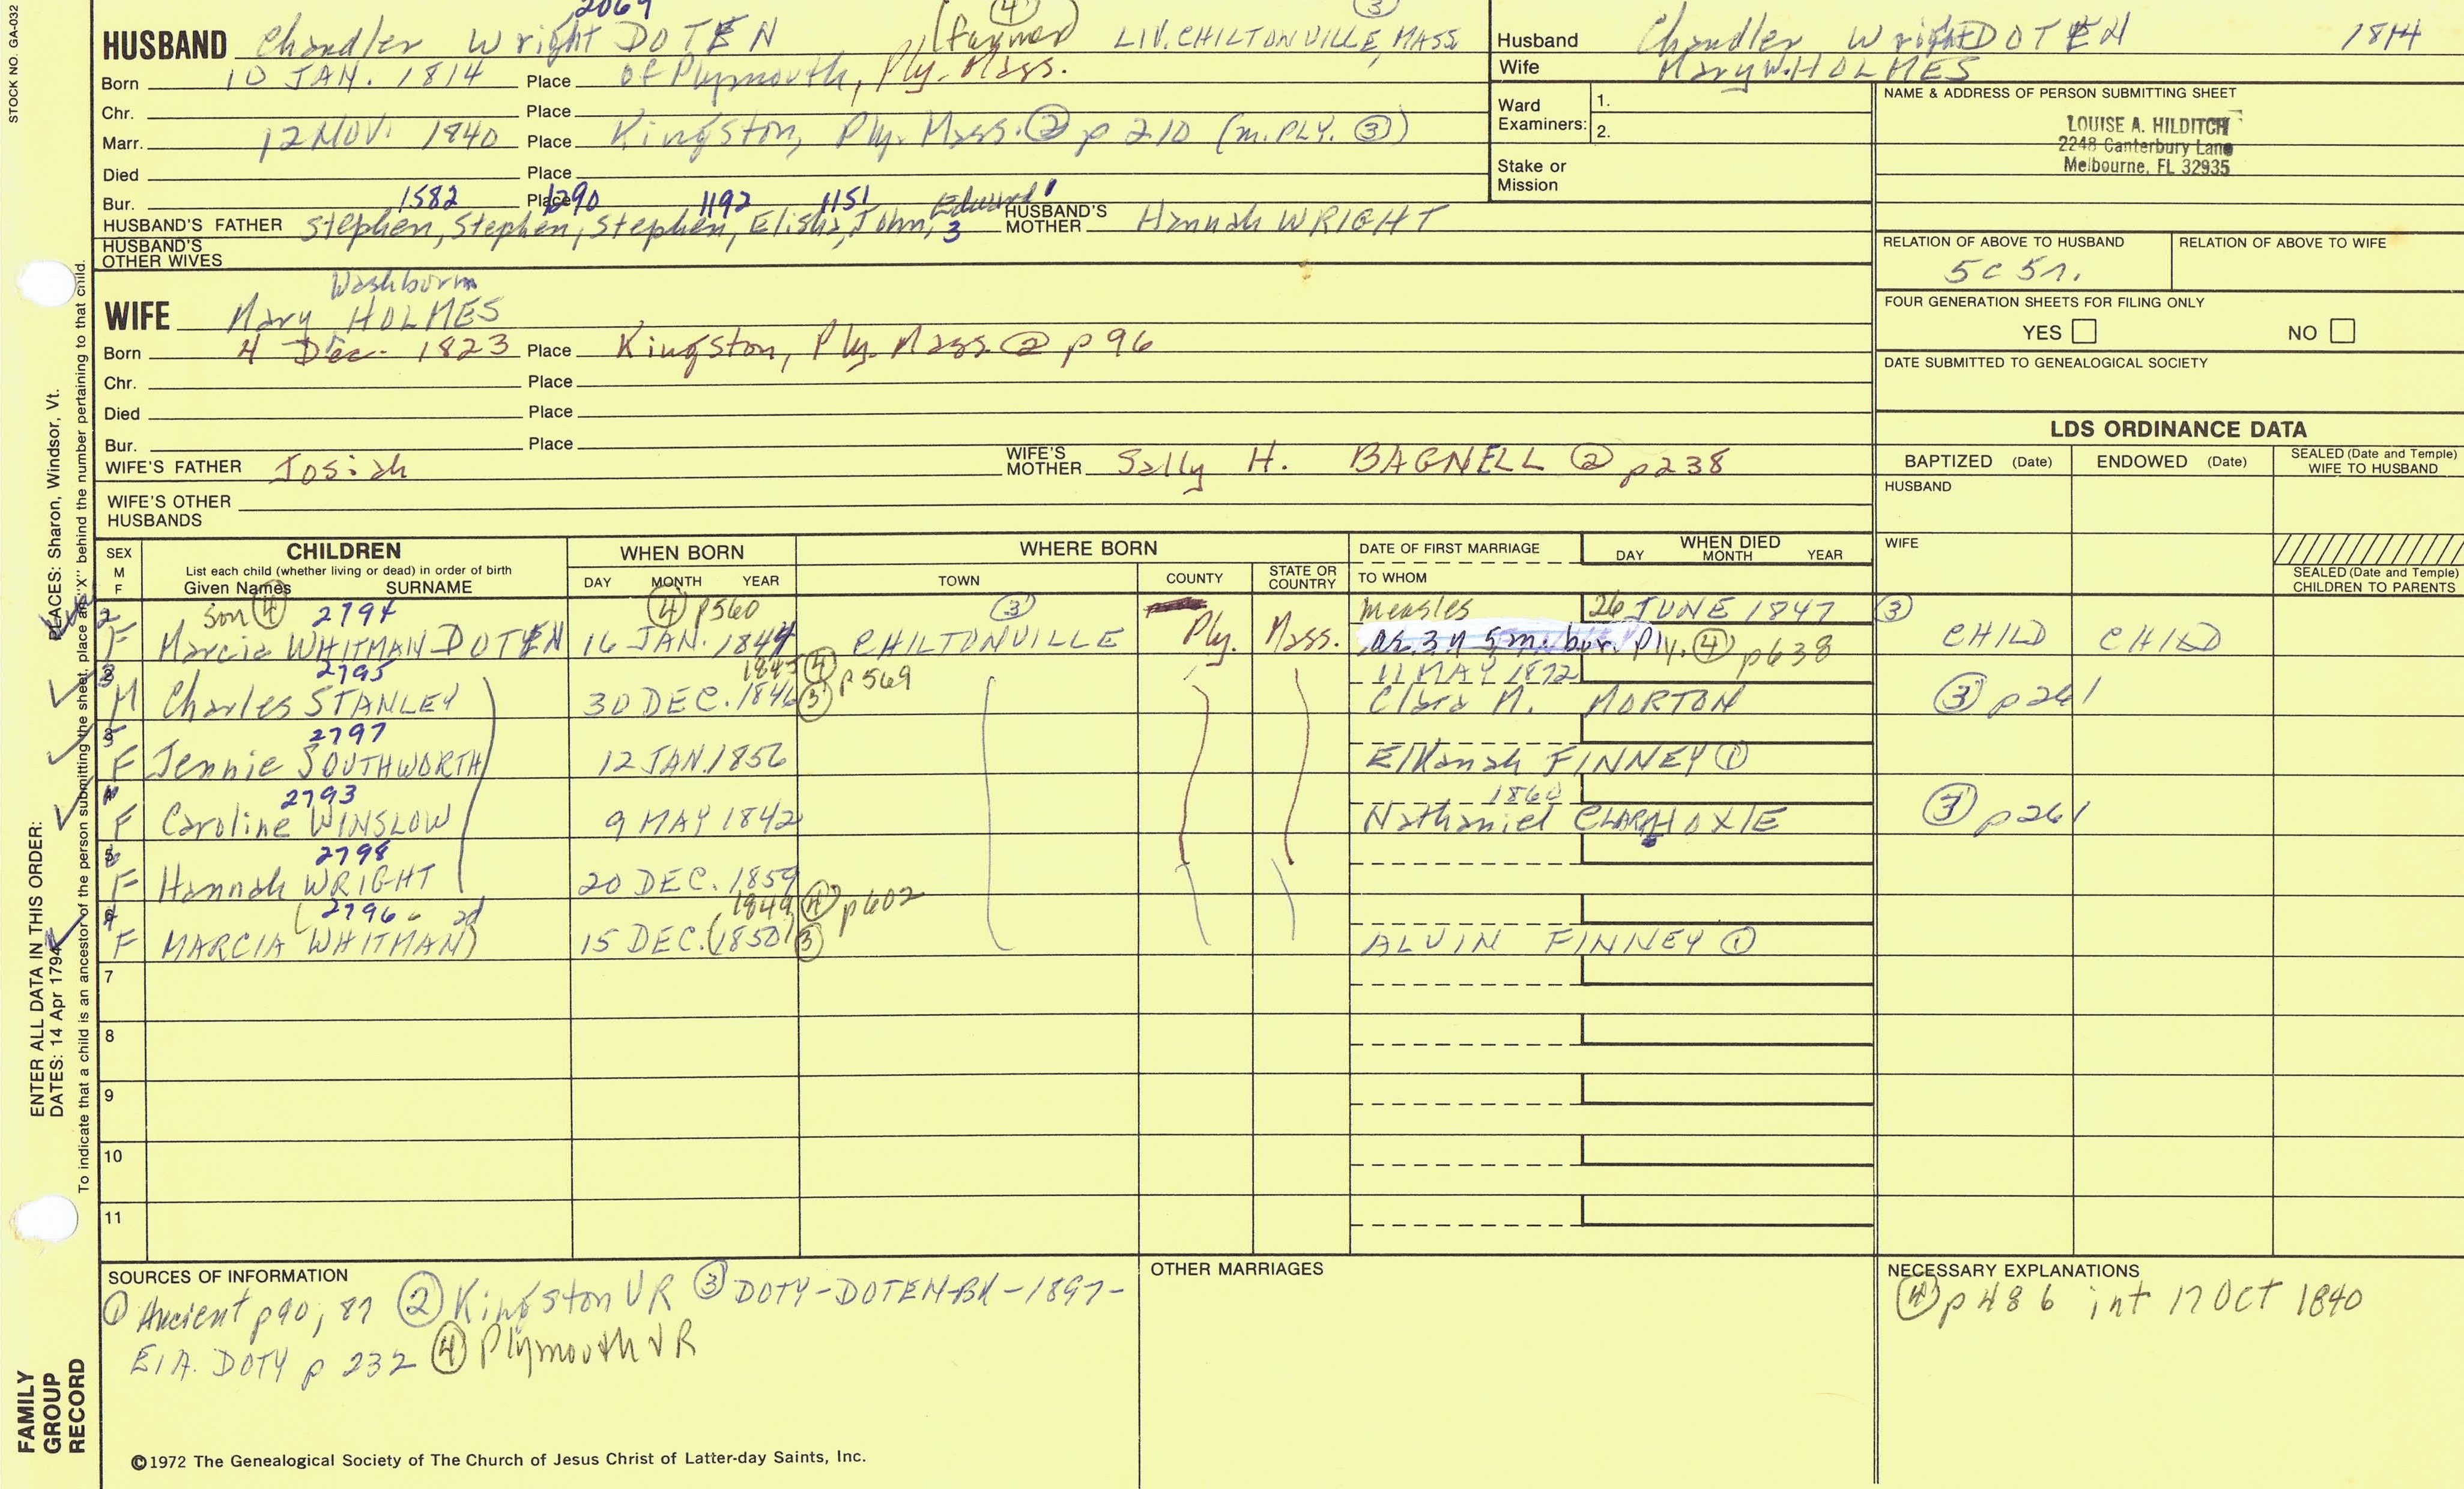 STOCK NO. GA-032
2069
HUSBAND Chandler Wright DOTEN (farmer) ④ LIV. CHILTONVILLE, MASS ③
Born 10 JAN. 1814 Place of Plymouth, Ply. Mass.
Chr. Place
Marr. 12 NOV. 1840 Place Kingston, Ply. Mass. ② p 210 (m. PLY. ③)
Died Place
Bur. Place
1582 1290 1192 1151 Edward 1
HUSBAND'S FATHER Stephen, Stephen, Stephen, Elisha, John, 3 HUSBAND'S MOTHER Hannah WRIGHT
HUSBAND'S OTHER WIVES
Washburn
WIFE Mary HOLMES
Born 4 Dec. 1823 Place Kingston, Ply. Mass. ② p 96
Chr. Place
Died Place
Bur. Place
WIFE'S FATHER Josiah WIFE'S MOTHER Sally H. BAGNELL ② p238
WIFE'S OTHER HUSBANDS
Husband Chandler Wright DOTEN 1814
Wife Mary W. HOLMES
Ward Examiners: 1.
2.
Stake or Mission
NAME & ADDRESS OF PERSON SUBMITTING SHEET
LOUISE A. HILDITCH
2248 Canterbury Lane
Melbourne, FL 32935
RELATION OF ABOVE TO HUSBAND RELATION OF ABOVE TO WIFE
5C 5r.
FOUR GENERATION SHEETS FOR FILING ONLY
YES NO
DATE SUBMITTED TO GENEALOGICAL SOCIETY
LDS ORDINANCE DATA
BAPTIZED (Date) ENDOWED (Date) SEALED (Date and Temple) WIFE TO HUSBAND
HUSBAND
WIFE
SEALED (Date and Temple) CHILDREN TO PARENTS
SEX M F CHILDREN WHEN BORN WHERE BORN DATE OF FIRST MARRIAGE WHEN DIED
List each child (whether living or dead) in order of birth DAY MONTH YEAR
Given Names SURNAME DAY MONTH YEAR TOWN COUNTY STATE OR COUNTRY TO WHOM
son ④ 2794 ④ p560 ③ measles 26 JUNE 1847 ③
F Marcia WHITMAN DOTEN 16 JAN. 1844 CHILTONVILLE Ply. Mass. ae. 3 y 5 m. bur. Ply. ④ p638 CHILD CHILD
2795 1845 ④ p569 11 MAY 1872
M Charles STANLEY 30 DEC. 1846 ③ Clara N. MORTON ③ p261
2797
F Jennie SOUTHWORTH 12 JAN. 1856 Elkanah FINNEY ①
2793 1860
F Caroline WINSLOW 9 MAY 1842 Nathaniel CLARK HOXIE ③ p261
2798
F Hannah WRIGHT 20 DEC. 1859
2796 2d 1849 ④ p602
F MARCIA WHITMAN 15 DEC. (1850) ③ ALVIN FINNEY ①
7
8
9
10
11
SOURCES OF INFORMATION
① Ancient p90, 87 ② Kingston VR ③ DOTY-DOTEN-BK-1897-
E.A. DOTY p 232 ④ Plymouth VR
OTHER MARRIAGES
NECESSARY EXPLANATIONS
④ p486 int 17 OCT 1840
©1972 The Genealogical Society of The Church of Jesus Christ of Latter-day Saints, Inc.
FAMILY GROUP RECORD
ENTER ALL DATA IN THIS ORDER:
DATES: 14 Apr 1794 PLACES: Sharon, Windsor, Vt.
To indicate that a child is an ancestor of the person submitting the sheet, place an "X" behind the number pertaining to that child.